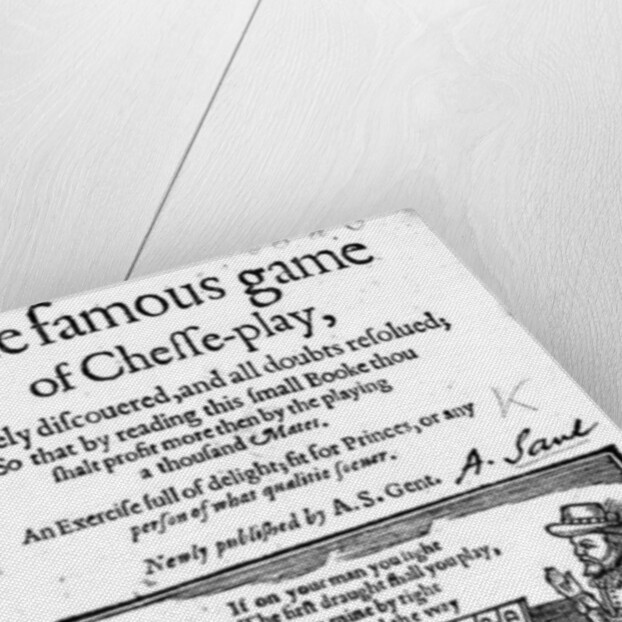 e famous game
of Cheſſe-play,
ely diſcouered, and all doubts reſolued;
So that by reading this ſmall Booke thou
ſhalt profit more then by the playing
a thouſand Mates.
An Exerciſe full of delight; fit for Princes, or any
perſon of what qualitie ſoeuer.
Newly publiſhed by A.S. Gent.
A. Saul
K
If on your man you light
The firſt draught ſhall you play,
mine by right
the way